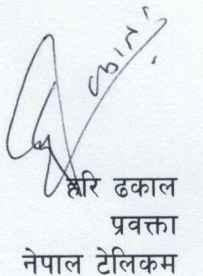 हरि ढकाल
प्रवक्ता
नेपाल टेलिकम